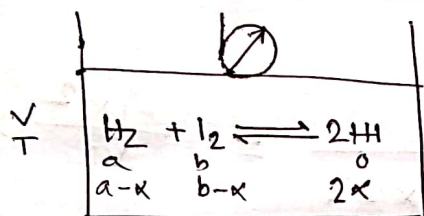 V
T
H2 + I2 ⇌ 2HI
a b 0
a-x b-x 2x